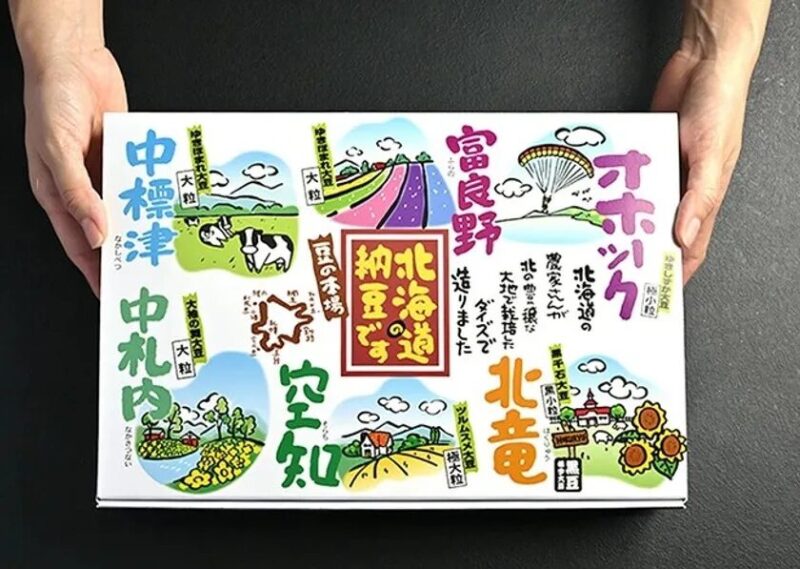 オホーツク
ゆきしずか大豆
極小粒
富良野
ふらの
ゆきほまれ大豆
大粒
中標津
なかしべつ
ゆきほまれ大豆
大粒
北海道の
農家さんが
北の豊穣な
大地で栽培した
ダイズで
造りました
北海道の
納豆です
豆の本場
北竜
ほくりゅう
黒千石大豆
黒小粒
黒豆
空知
そらち
ツルムスメ大豆
極大粒
中札内
なかさつない
大粒